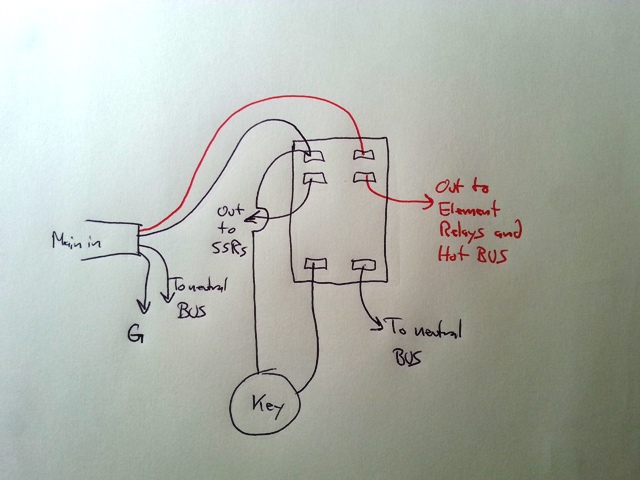 Main in
G
To neutral
BUS
Out
to
SSRs
Out to
Element
Relays and
Hot BUS
To neutral
BUS
Key